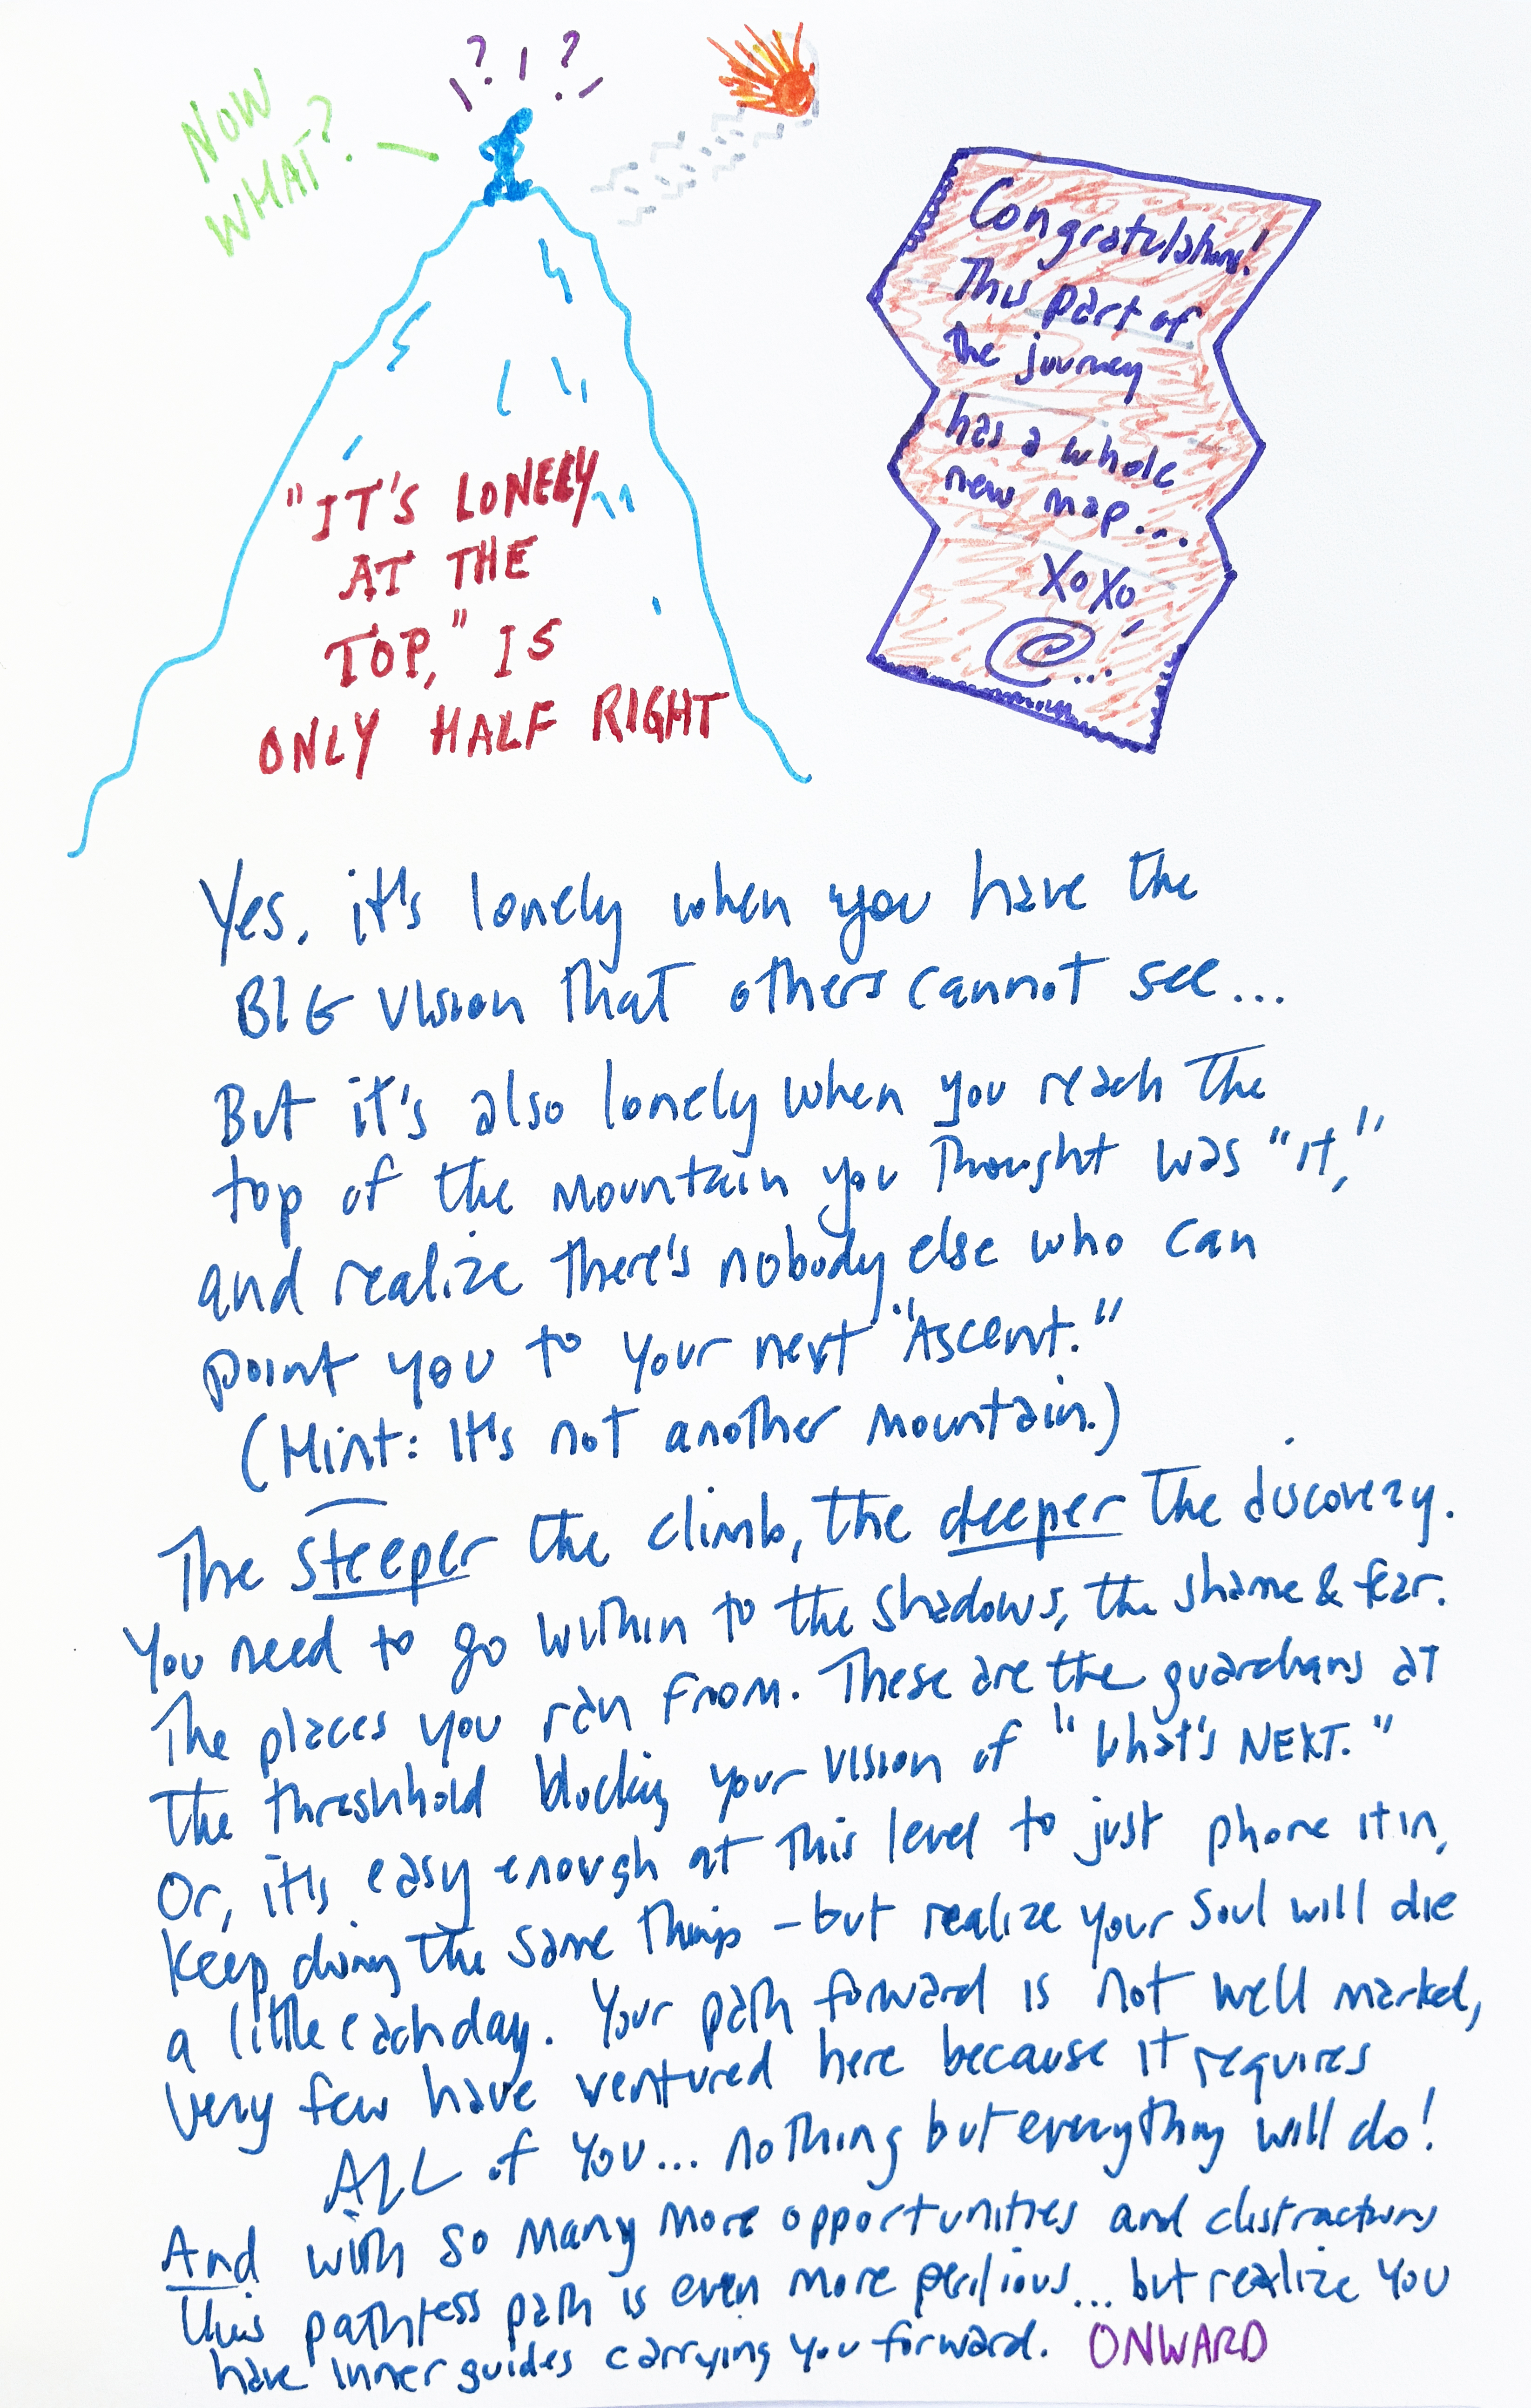 ? ! ?
NOW
WHAT?
Congratulations!
This part of
the journey
has a whole
new map...
XOXO
"IT'S LONELY
AT THE
TOP," IS
ONLY HALF RIGHT
Yes, it's lonely when you have the
BIG vision that others cannot see...
But it's also lonely when you reach the
top of the mountain you thought was "it,"
and realize there's nobody else who can
point you to your next "Ascent."
(Hint: It's not another mountain.)
The steeper the climb, the deeper the discovery.
You need to go within to the shadows, the shame & fear.
The places you ran from. These are the guardians at
the threshhold blocking your vision of "What's NEXT."
Or, it's easy enough at this level to just phone it in,
keep doing the same things - but realize your soul will die
a little each day. Your path forward is not well marked,
very few have ventured here because it requires
ALL of You... nothing but everything will do!
And with so many more opportunities and distractions
this pathless path is even more perilious... but realize you
have inner guides carrying you forward. ONWARD